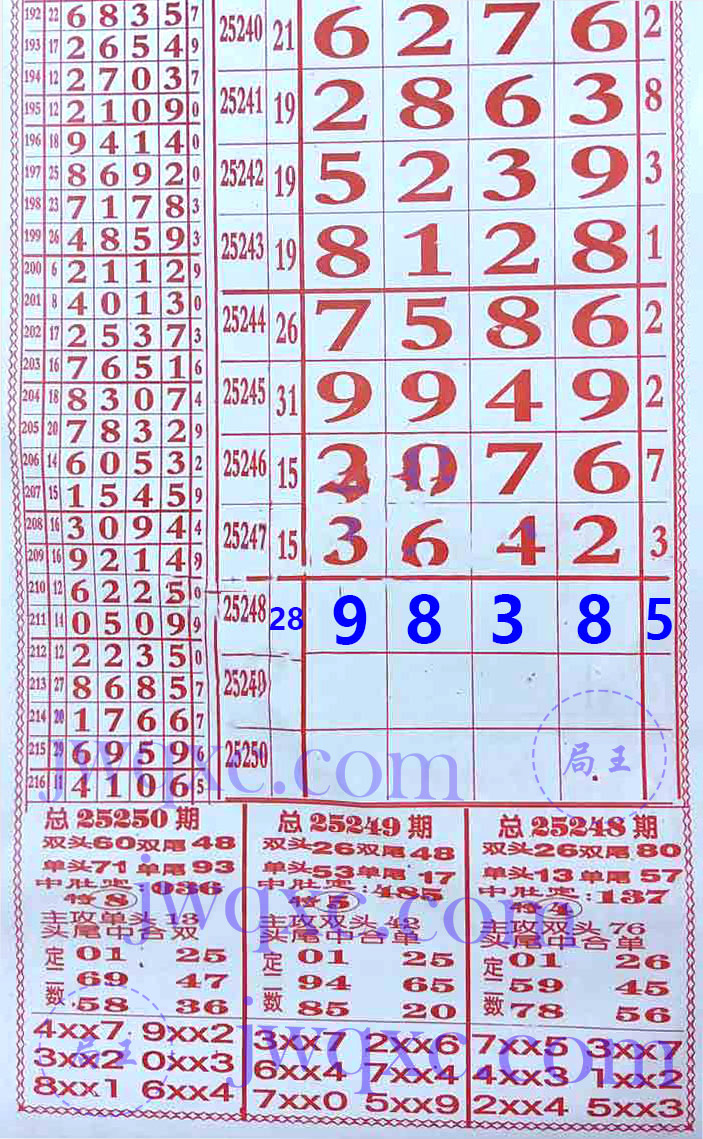 192 22 6 8 3 5 7
193 17 2 6 5 4 9
194 12 2 7 0 3 7
195 12 2 1 0 9 0
196 18 9 4 1 4 0
197 25 8 6 9 2 0
198 23 7 1 7 8 3
199 26 4 8 5 9 3
200 6 2 1 1 2 9
201 8 4 0 1 3 0
202 17 2 5 3 7 3
203 16 7 6 5 1 6
204 18 8 3 0 7 4
205 20 7 8 3 2 9
206 14 6 0 5 3 2
207 15 1 5 4 5 9
208 16 3 0 9 4 4
209 16 9 2 1 4 9
210 12 6 2 2 5 0
211 14 0 5 0 9 9
212 12 2 2 3 5 0
213 27 8 6 8 5 7
214 20 1 7 6 6 7
215 29 6 9 5 9 6
216 11 4 1 0 6 5
25240 21 6 2 7 6 2
25241 19 2 8 6 3 8
25242 19 5 2 3 9 3
25243 19 8 1 2 8 1
25244 26 7 5 8 6 2
25245 31 9 9 4 9 2
25246 15 2 0 7 6 7
25247 15 3 6 4 2 3
25248 28 9 8 3 8 5
25249
25250
局王
jwqxc.com
总25250期
双头60双尾48
单头71单尾93
中肚宝:036
特8
主攻单头13
头尾中合双
定二数
01 25
69 47
58 36
4xx7 9xx2
3xx2 0xx3
8xx1 6xx4
总25249期
双头26双尾48
单头53单尾17
中肚宝:485
特5
主攻双头42
头尾中合单
定二数
01 25
94 65
85 20
3xx7 2xx6
6xx4 7xx4
7xx0 5xx9
总25248期
双头26双尾80
单头13单尾57
中肚宝:137
特4
主攻双头76
头尾中合单
定二数
01 26
59 45
78 56
7xx5 3xx7
4xx3 1xx2
2xx4 5xx3
jwqxc.com
局王
jwqxc.com